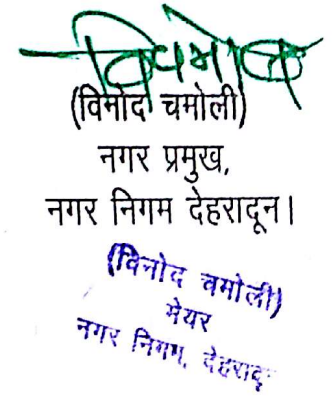 (विनोद चमोली)
नगर प्रमुख,
नगर निगम देहरादून।
(विनोद चमोली)
मेयर
नगर निगम, देहरादू